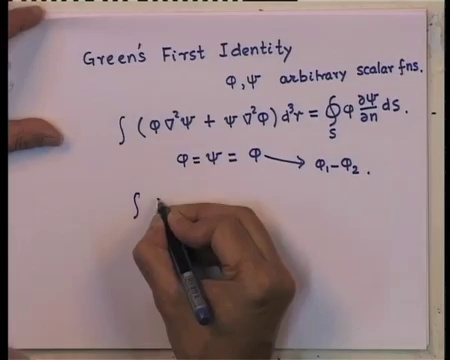 Green's First Identity
φ, ψ arbitrary scalar fns.
∫ (φ ∇²ψ + ψ ∇²φ) d³r = ∮_S φ ∂ψ/∂n dS.
φ = ψ = φ ⟶ φ₁ – φ₂.
∫